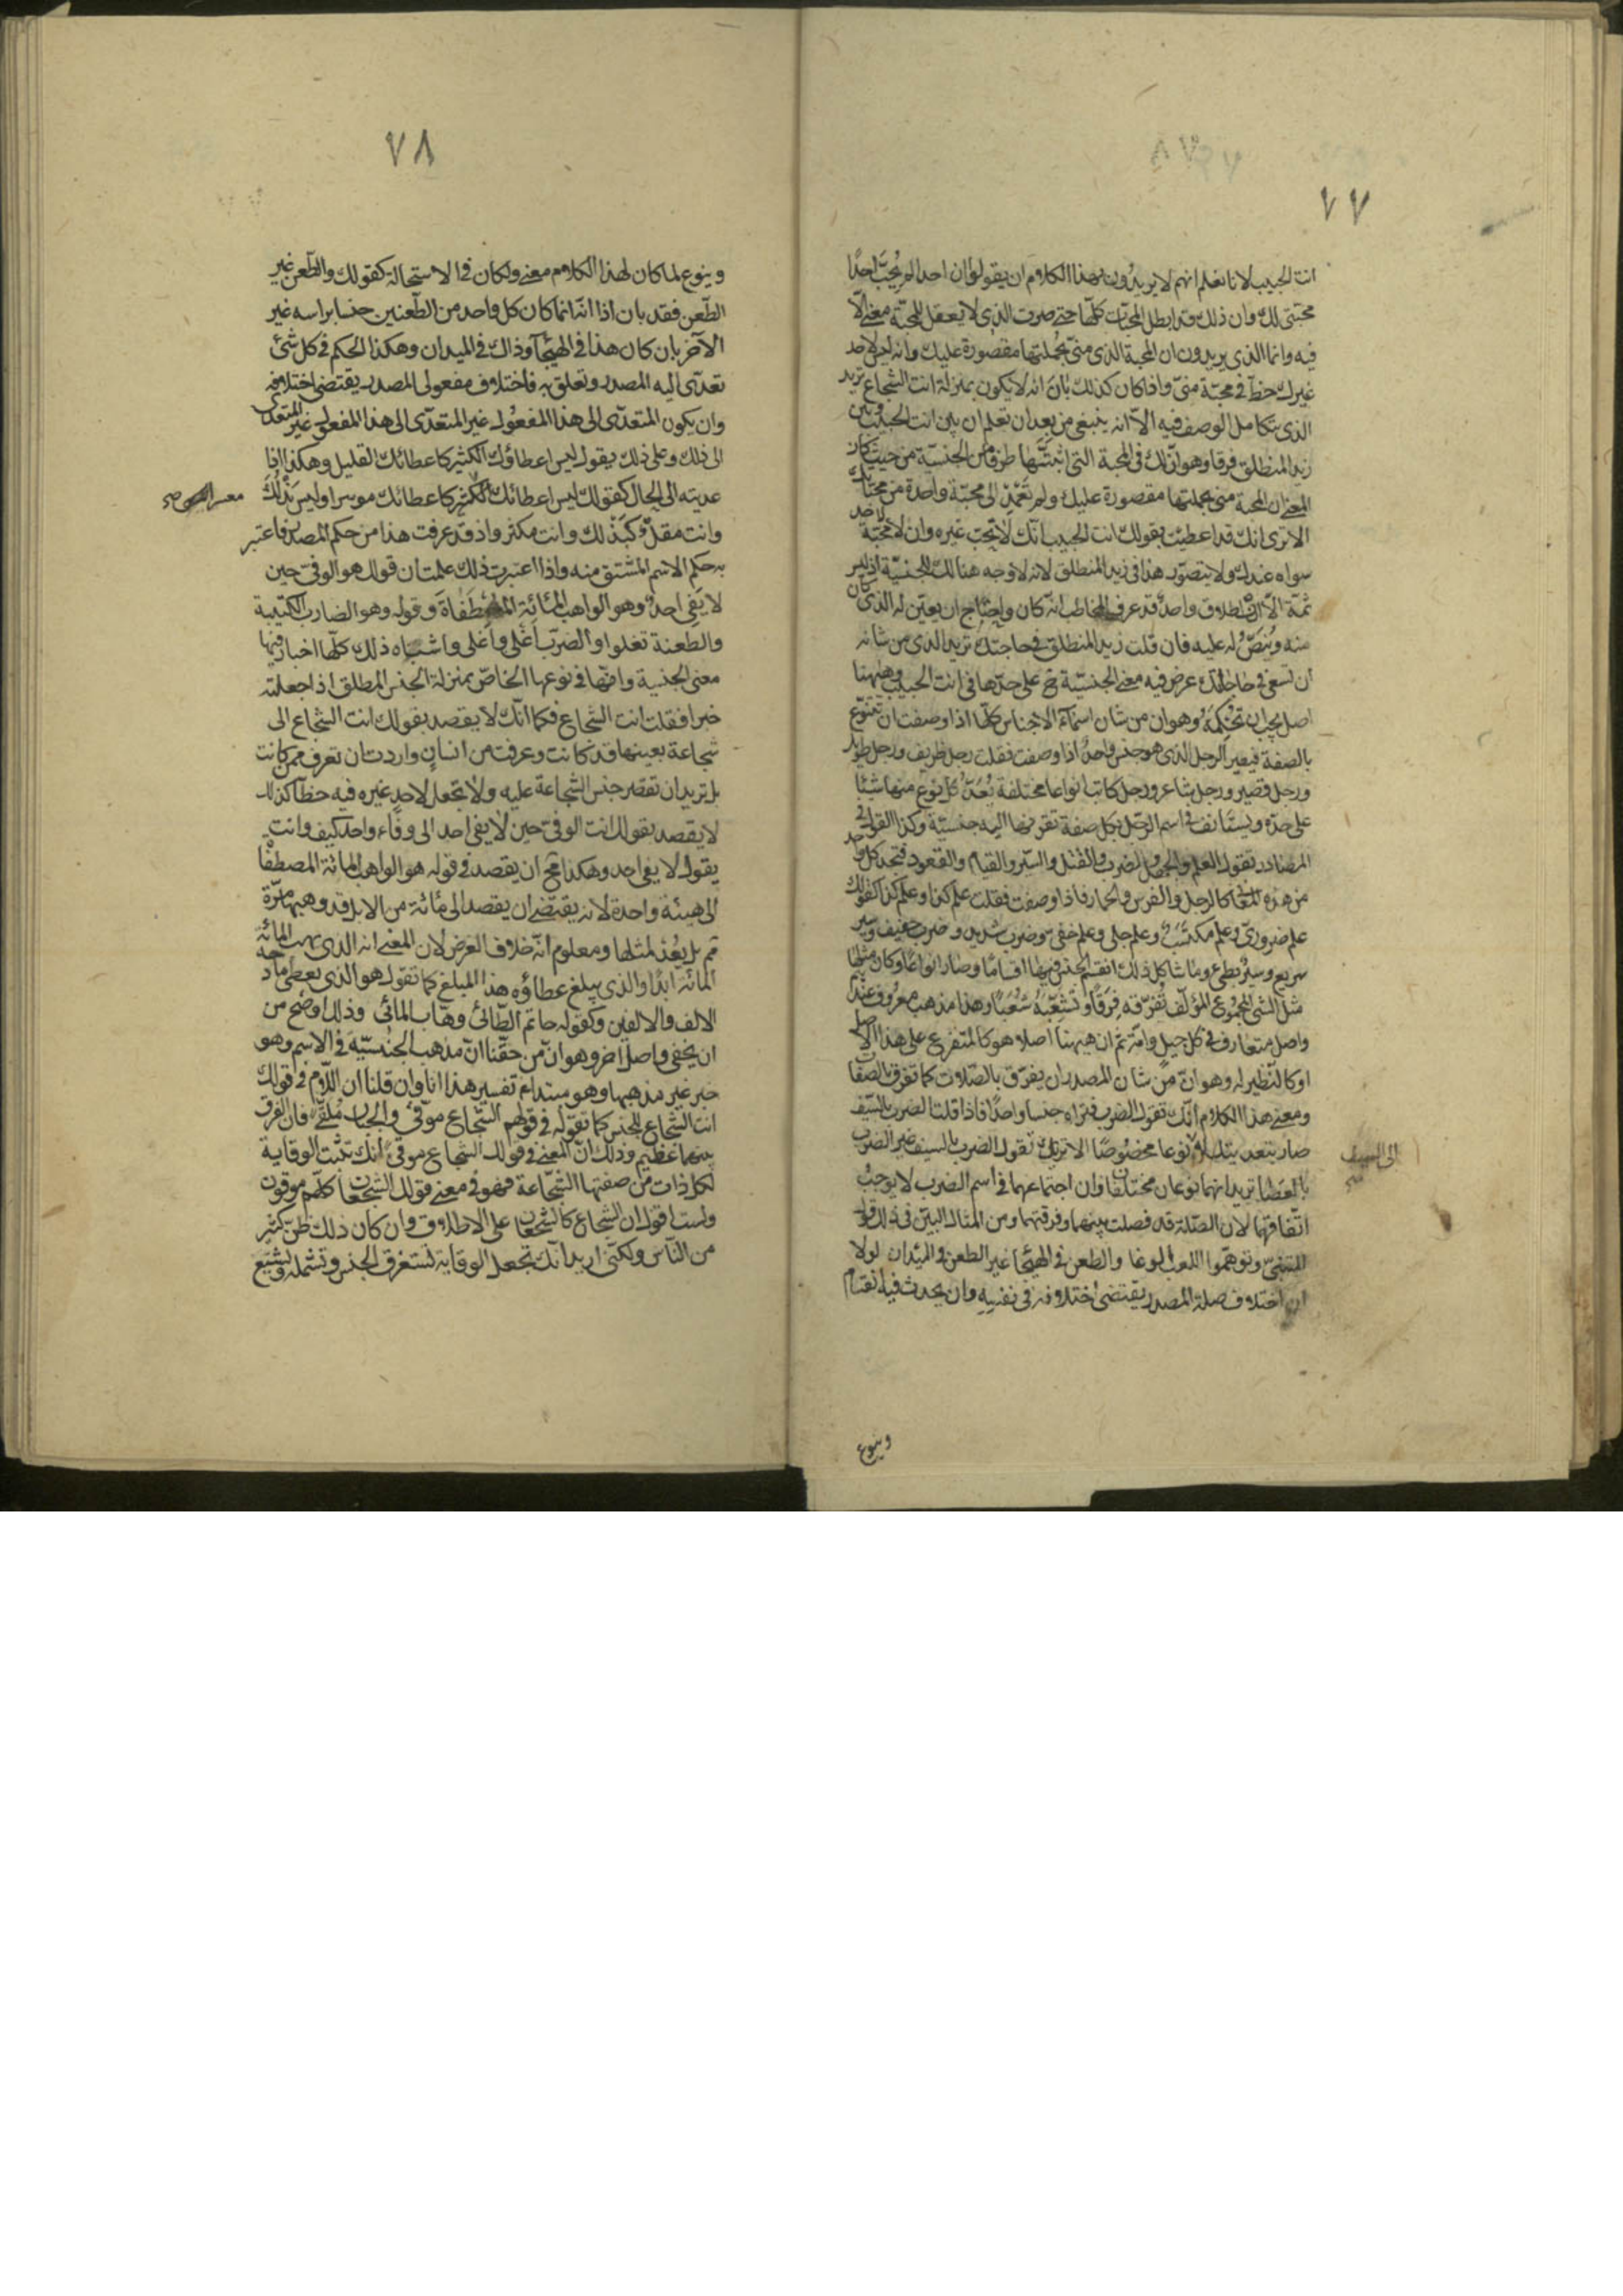 ٧٧
انت الحبيب لانا نعلم انهم لا يريدون بهذا الكلام ان يقولوا ان احدا لم يُحِبّ احدًا
محبتى لك وان ذلك قد ابطل المحبّات كلّها حتى صرت الذى لا يعقل للمحبّة معنى الّا
فيه وانما الذى يريدون ان المحبة الذى منى بجملتها مقصورة عليك وانه ليس لاحد
غيرك حظّ فى محبّة منىّ واذا كان كذلك بان انه لا يكون بمنزلة انت الشجاع تريد
الذى يتكامل الوصف فيه الا انه ينبغى من بعد ان تعلم ان بين انت الحبيب وبين
زيد المنطلق فرقا وهو انّ لك فى المحبة التى اثبتَّها طرفا من الجنسيّة من حيث كان
المعنى ان المحبة منى بجملتها مقصورة عليك ولم تَعْمِدْ الى محبّة واحدة من محبّاتك
الا ترى انك قد اعطيت بقولك انت الحبيب انّك لا تحبّ غيره وان لا محبّة لاحد
سواه عندك ولا يتصوّر هذا فى زيد المنطلق لانه لا وجه هناك للجنسيّة اذ ليس
ثمّة الّا انطلاق واحدٌ قد عرف المخاطب انّه كان واحتاج ان يعيّن له الذى كان
منه ويُنَصُّ له عليه فان قلت زيد المنطلق فى حاجتك تريد الذى من شانه
ان تسعى فى حاجتك عرض فيه معنى الجنسيّة ح على حدّها فى انت الحبيب وههنا
اصل يجب ان تُحْكِمَهُ وهو ان من شان اسماء الاجناس كلّها اذا وصفت ان تتنوّع
بالصفة فيصير الرجل الذى هو جنس واحدٌ اذا وصفت فقلت رجل ظريف ورجل طويل
ورجل قصير ورجل شاعر ورجل كاتب انواعا مختلفة يُعَدّ كل نوع منها شيئا
على حدة ويستأنف فى اسم الرجل بكل صفة تقرنها اليه جنسيّة وكذا القول فى
المصادر تقول العلم والجهل والضرب والقتل والسير والقيام والقعود فتجد كل واحد
من هذه المعانى كالرجل والفرس والحمار فاذا وصفت فقلت علم كذا وعلم كذا كقولك
علم ضرورىّ وعلم مكتسَب وعلم جلى وعلم خفى وضرب شديد وضرب خفيف وسير
سريع وسيرٌ بطئ وما شاكل ذلك انقسم الجنس فيها اقسامًا وصار انواعًا وكان مثلها
مثل الشئ المجموع المؤلّف تُفَرّقه فِرَقًا وتُشَعِّبَهُ شُعَبًا وهذا مذهب معروف عندهم
واصل متعارف فى كل جيل وامّة ثم ان ههنا اصلا هو كالمتفرع على هذا الاصل
او كالنظير له وهو انّ من شان المصدر ان يفرّق بالصّلات كما تفرق بالصفات
ومعنى هذا الكلام انّك تقول الضرب فتراه جنسا واحدًا فاذا قلت الضرب بالسّيف
صار بتعديتك له نوعا مخصُوصًا الا تريك تقول الضرب بالسيف غير الضرب
الى السيف
بالعَصَا تريد انهما نوعان مختلفان وان اجتماعهما فى اسم الضرب لا يوجبُ
اتّفاقهما لان الصّلة قد فصلت بينهما وفرقتهما ومن المثال البيّن فى ذلك قول
المتنبّى وتوهّموا اللعب الوغا والطعن فى الهيجا غير الطعن فى الميدان لولا
ان اختلاف صلة المصدر يقتضى اختلافه فى نفسِهِ وان يحدث فيه انقسام
وينوع
٧٨
وينوع لما كان لهذا الكلام معنى ولكان فى الاستحالة كقولك والطّعن غير
الطّعن فقد بان اذا انّه انما كان كل واحد من الطّعنين جنسا براسه غير
الآخر بان كان هذا فى الهيجآ وذاك فى الميدان وهكذا الحكم فى كل شئ
تعدّى اليه المصدر وتعلق به فاختلاف مفعولى المصدر يقتضى اختلافه
وان يكون المتعدّى الى هذا المفعُول غير المتعدّى الى هذا المفعول غير المتعدى
الى ذلك وعلى ذلك يقول ليس اعطاؤك الكثير كاعطائك القليل وهكذا اذا
عديته الى الحال كقولك ليس اعطائك الكثير كاعطائك موسرا وليس بَذْلُكَ
وانت مقلّ كبَذْلك وانت مكثر واذ قد عرفت هذا من حكم المصدر فاعتبر
به حكم الاسم المشتق منه واذا اعتبرت ذلك علمت ان قولك هو الوفى حين
لا يَفى احدٌ وهو الواهب المائة المصطَفَاةَ وقوله وهو الضارب الكتيبة
والطعنة تغلوا والضرب أغلى وأغلى واشباه ذلك كلّها اخبار فيها
معنى الجنسية وانّها فى نوعها الخاصّ بمنزلة الجنس المطلق اذا جعلته
خبرا فقلت انت الشجاع فكما انّك لا يقصد بقولك انت الشجاع الى
شجاعة بعينها قد كانت وعرفت من انسان واردت ان تعرف ممن كانت
بل تريد ان تقصر جنس الشجاعة عليه ولا تجعل لاحدٍ غيره فيه حظّا كذلك
لا يقصد بقولك انت الوفى حين لا يفى احد الى وفاء واحد كيف وانت
يقول لا يفى احد وهكذا مح ان يقصد فى قوله هو الواهب المائة المصطفا
الى هيئة واحدة لانه يقتضى ان يقصد الى مائة من الابل قد وهبها مرّة
ثم لم يعُدْ لمثلها ومعلوم انّه خلاف الغرض لان المعنى انه الذى يهب المائة
المائة ابدًا والذى يبلغ عطاؤه هذا المبلغ كما تقول هو الذى يعطى مادحه
الالف والالفين وكقوله حاتم الطّائىّ وهّاب المائى وذلك اوضح من
ان يخفى واصل آخر وهو انّ من حقّنا انّ مذهب الجنسيّة فى الاسم وهو
خبر غير مذهبها وهو مبتدا تفسير هذا انا وان قلنا ان اللّام فى قولك
انت الشّجاع للجنس كما تقوله فى قولهم الشّجاع موقّى والجبان مُلقّى فان الفرق
بينهما عظيم وذلك ان المعنى فى قولك الشجاع موقّى انك تثبت الوقاية
لكل ذات من صفتها الشّجاعة فهو فى معنى قولك الشجعان كلّهم موقون
ولست اقول ان الشجاع كالشجعان على الاطلاق وان كان ذلك ظنّ كثير
من النّاس ولكنّى اريد انك تجعل الوقاية تستغرق الجنس وتشمله وتشيع